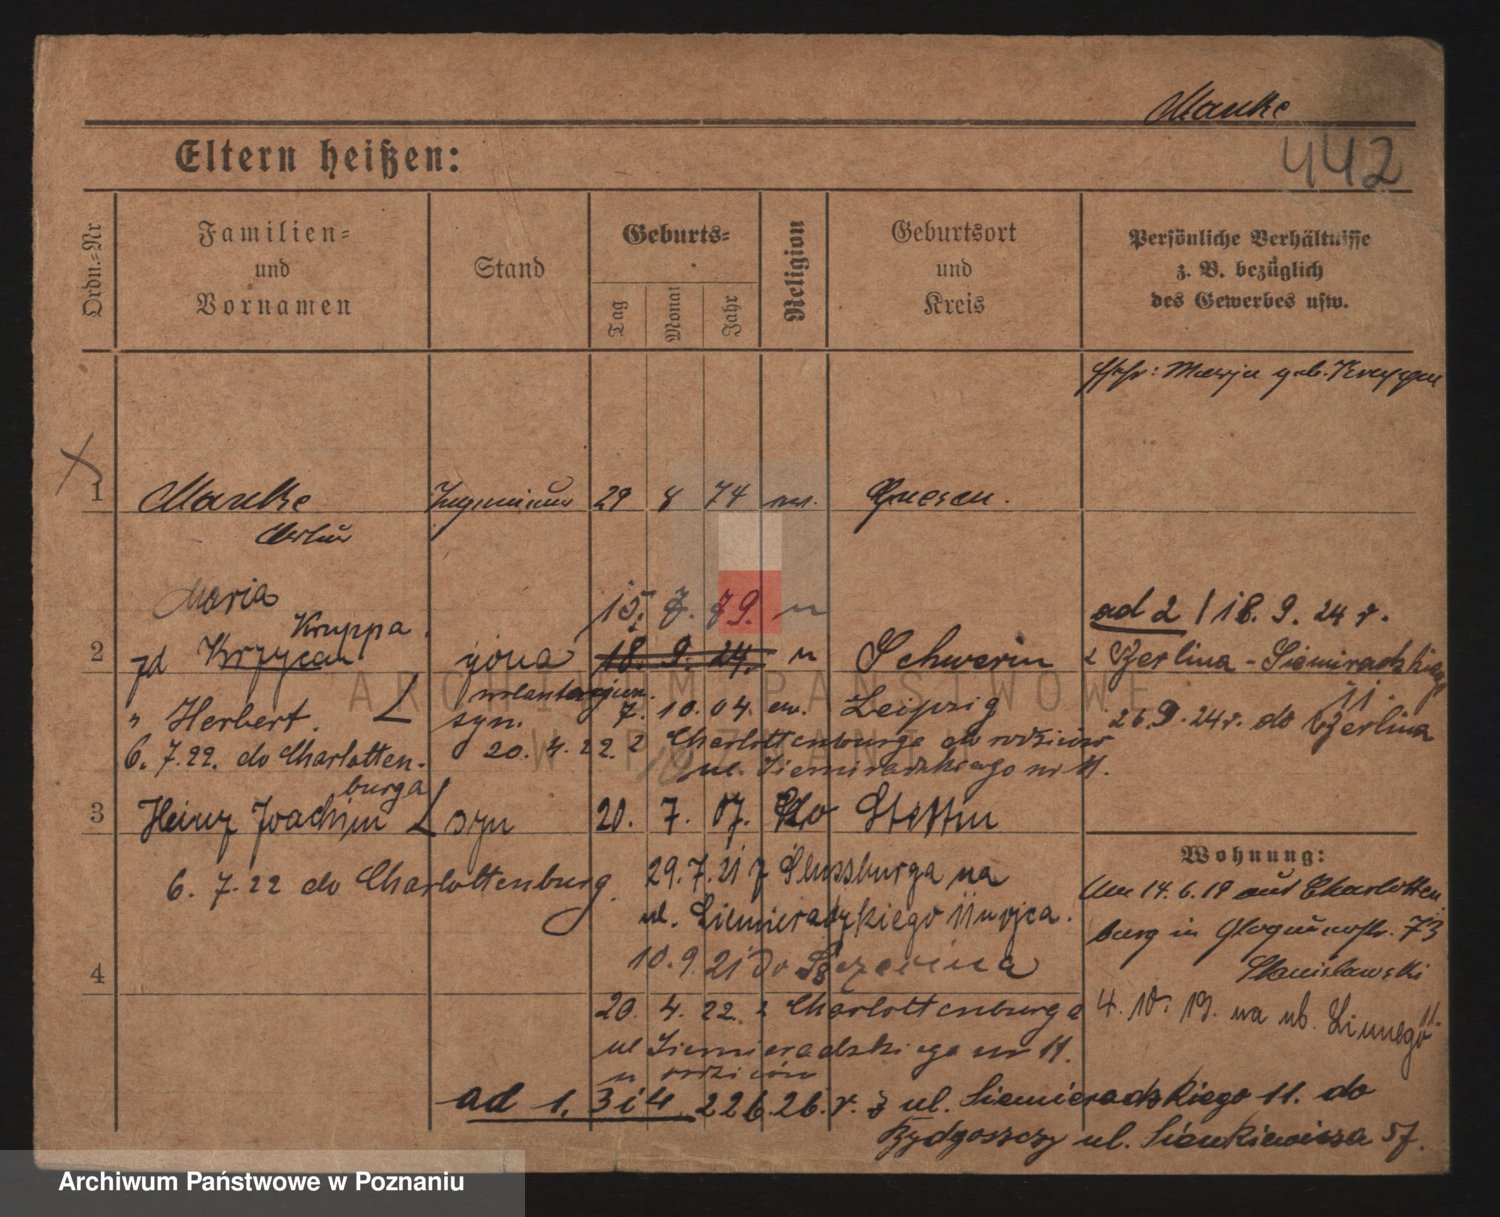 Manke
442
Eltern heißen:
Ordn.-Nr
Familien-
und
Vornamen
Stand
Geburts-
Tag
Monat
Jahr
Religion
Geburtsort
und
Kreis
Persönliche Verhältnisse
z. B. bezüglich
des Gewerbes usw.
Marja geb.
1 Manke 29 8 74 Gnesen.
Artur
Maria
Kruppa.
15. 7. 79.
2 18. 9. 24. żona Schwerin
ad 2 / 18. 9. 24 r.
z Berlina - Siemiradzkiego
11.
" Herbert. syn. 7. 10. 04. ew. Leipzig
26.9.24r. do Berlina
6. 7. 22. do Charlotten-
burga
20. 4. 22. z Charlottenburga do rodziców
ul. Siemiradzkiego nr 11.
3 Heinz Joachim syn 20. 7. 07. Stettin
Wohnung:
6. 7. 22 do Charlottenburg.
29. 7. 21 z na
ul. Siemieradzkiego 11 u ojca.
10. 9. 21 do
Am 14. 6. 19 aus Charlotten
burg in 73
Stanislawski
4
20. 4. 22. z Charlottenburga
ul Siemieradzkiego nr 11.
u rodziców
4. 10. 19. na ub. 11.
ad 1, 3 i 4 22 6. 26. r. z ul. Siemieradzkiego 11. do
Bydgoszczy ul. Sienkiewicza 57.
ARCHIWUM PAŃSTWOWE
W POZNANIU
Archiwum Państwowe w Poznaniu